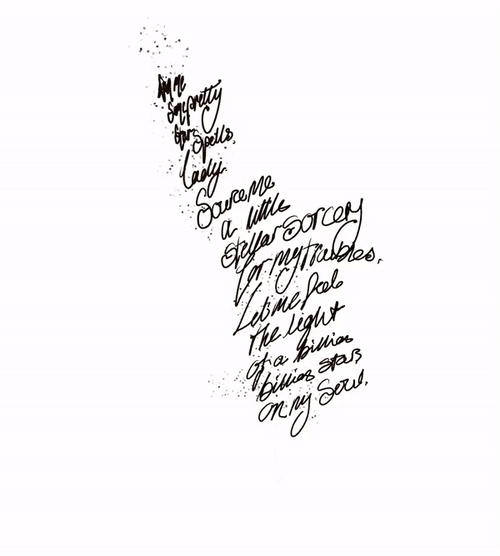 Sing me
Some pretty
Star Spells,
Lady.
Source me
a little
stellar Sorcery
for my troubles.
Let me feel
The light
of a billion
billion stars
on my Soul.